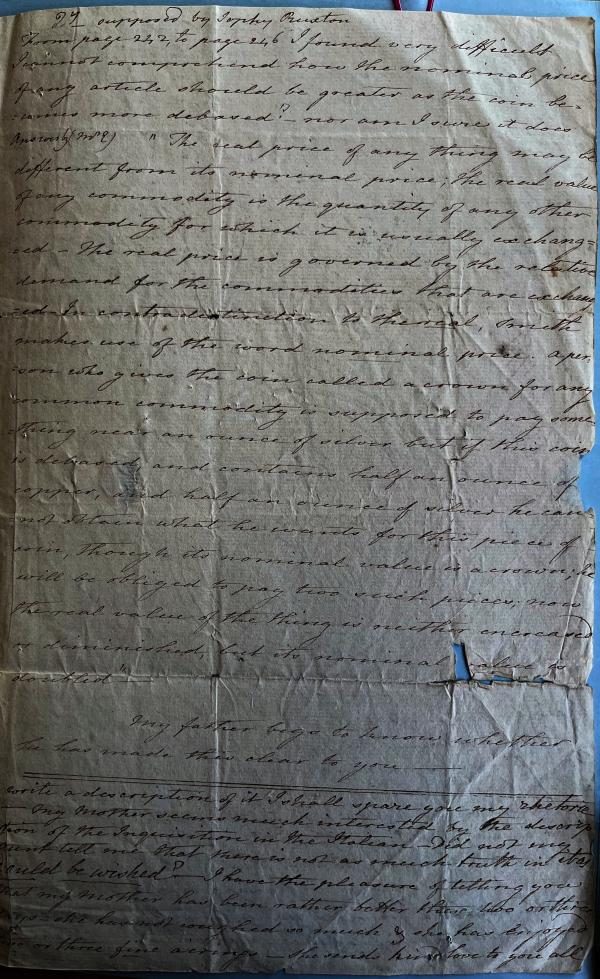 Qy supposed by Sophy Ruxton
From page 242, to page 246 I found very difficult
I cannot comprehend how the nominal price
of any article should be greater as the coin be=
=comes more debased? - nor am I sure it does
Answer by (Mr E) " The real price of any thing may be
different from its nominal price; the real value
of any commodity is the quantity of any other
commodity for which it is usually exchang=
=ed - The real price is governed by the relative
demand for the commodities that are exchang
=ed - In contradistinction to the real, Smith
makes use of the word nominal price. A per=
=son who gives the coin called a crown for any
common commodity is supposed to pay some=
thing near an ounce of silver but if this coin
is debased and contains half an ounce of
copper, and half an ounce of silver he can
not obtain what he wants for this piece of
coin, though its nominal value is a crown; he
will be obliged to pay two such pieces; now
the real value of the thing is neither encreased
or diminished, but its nominal value is
doubled "
My father begs to know whether
he has made this clear to you
write a description of it I shall spare you my rhetoric
- My mother seems much interested by the descrip
tion of the Inquisition in the Italian - Did not my
aunt tell me that there is not as much truth in it as
could be wished? - I have the pleasure of telling you
that my mother has been rather better these two or three
days - she has not coughed so much & she has enjoyed
two or three fine airings - She sends kind love to you all